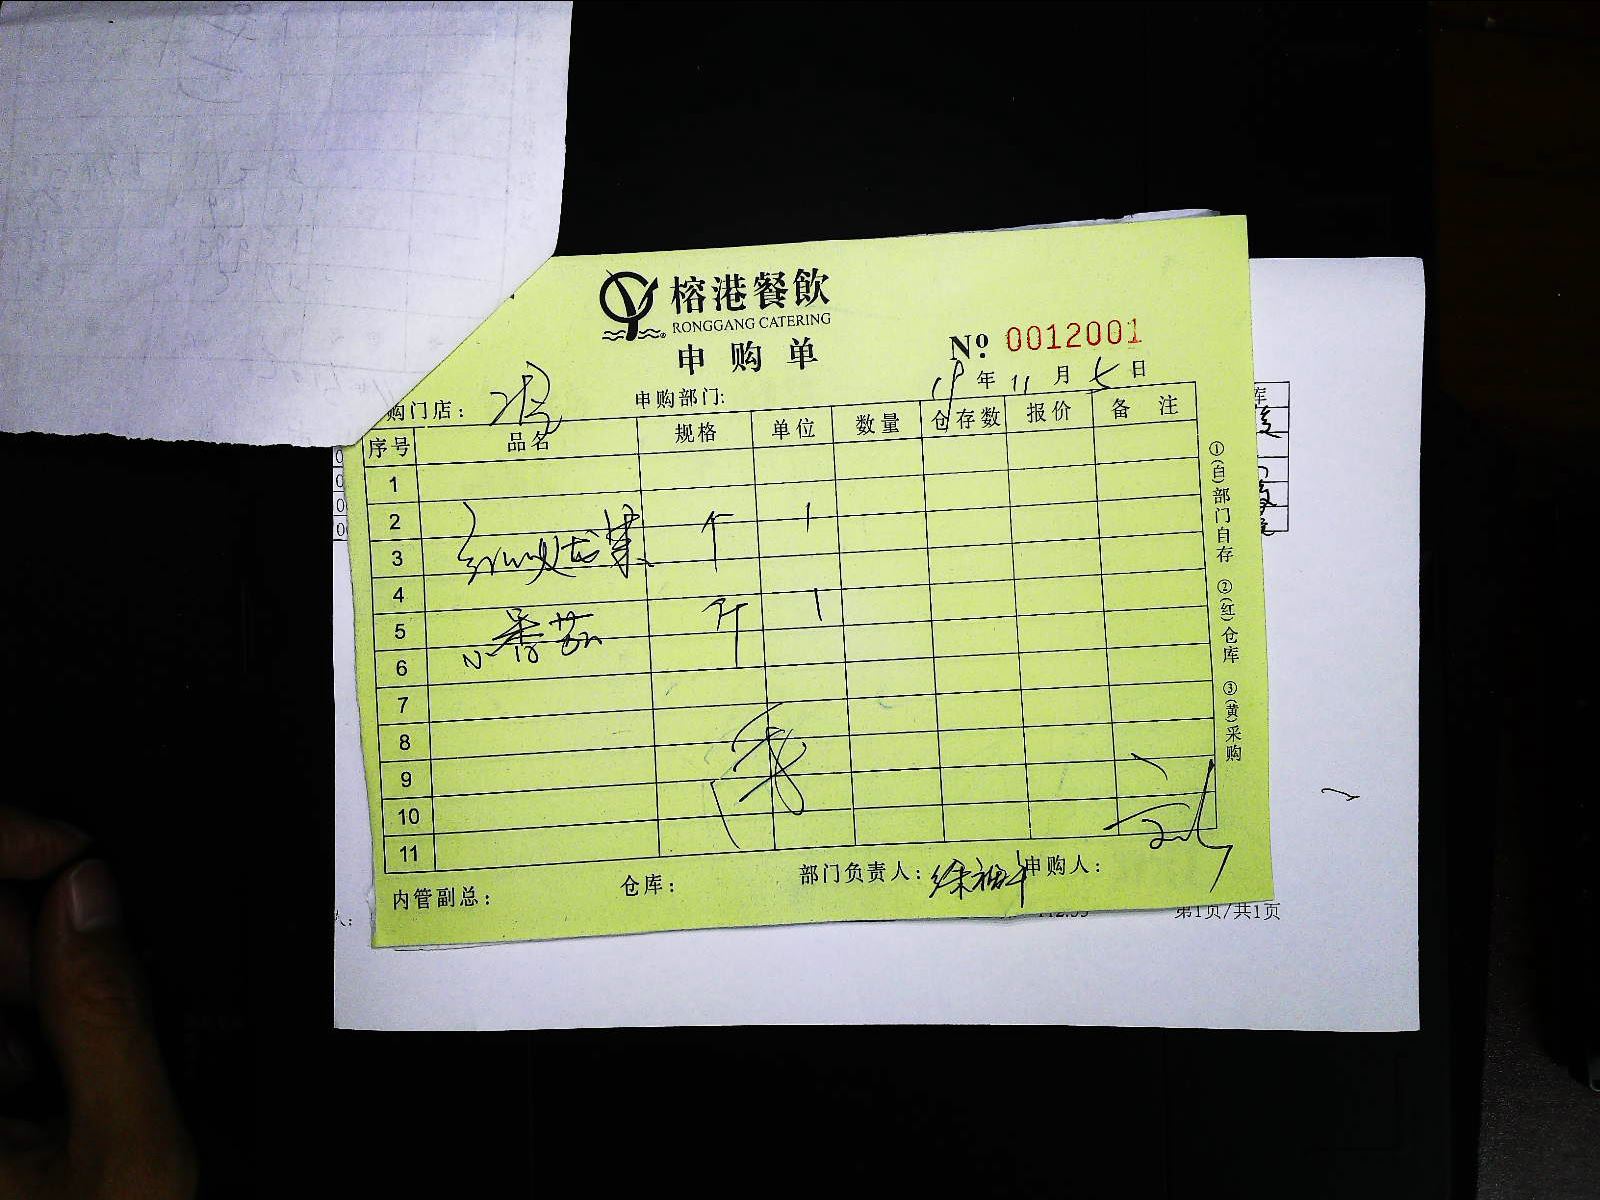 榕港餐飲
RONGGANG CATERING
申购单
No 0012001
19年11月5日
购门店：
申购部门:
序号 品名 规格 单位 数量 仓存数 报价 备注
1
2
3 红心火龙果 个 1
4
5 香菇 斤 1
6
7
8
9
10
11
内管副总： 仓库： 部门负责人： 申购人：
①(白)部门自存 ②(红)仓库 ③(黄)采购
第1页/共1页